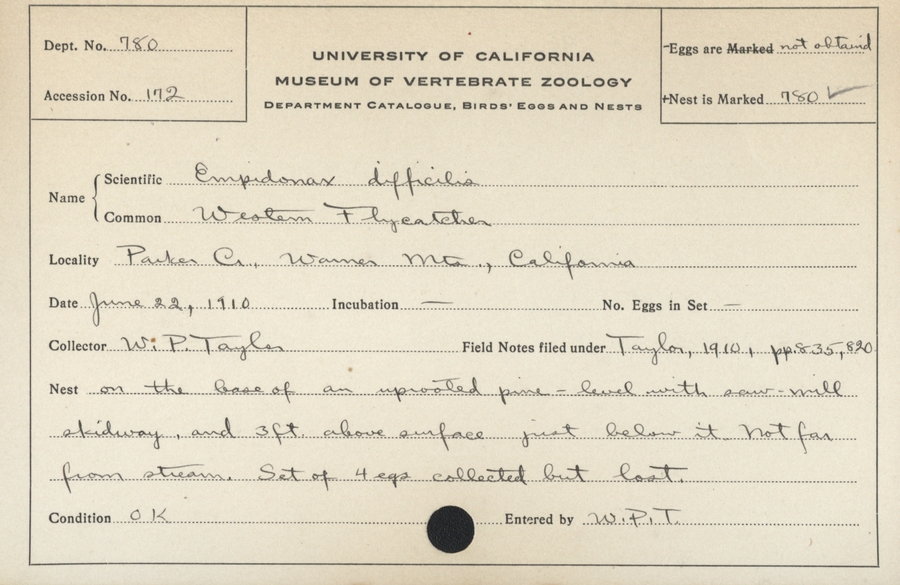 Dept. No. 780
Accession No. 172
UNIVERSITY OF CALIFORNIA
MUSEUM OF VERTEBRATE ZOOLOGY
DEPARTMENT CATALOGUE, BIRDS' EGGS AND NESTS
-Eggs are Marked not obtained
+Nest is Marked 780 ✓
Name
Scientific Empidonax difficilis
Common Western Flycatcher
Locality Parker Cr., Warner Mts., California
Date June 22, 1910 Incubation — No. Eggs in Set —
Collector W. P. Taylor Field Notes filed under Taylor, 1910, pp. 835, 820
Nest on the base of an uprooted pine - level with saw-mill
skidway, and 3ft above surface just below it. Not far
from stream. Set of 4 egs collected but lost.
Condition OK Entered by W.P.T.